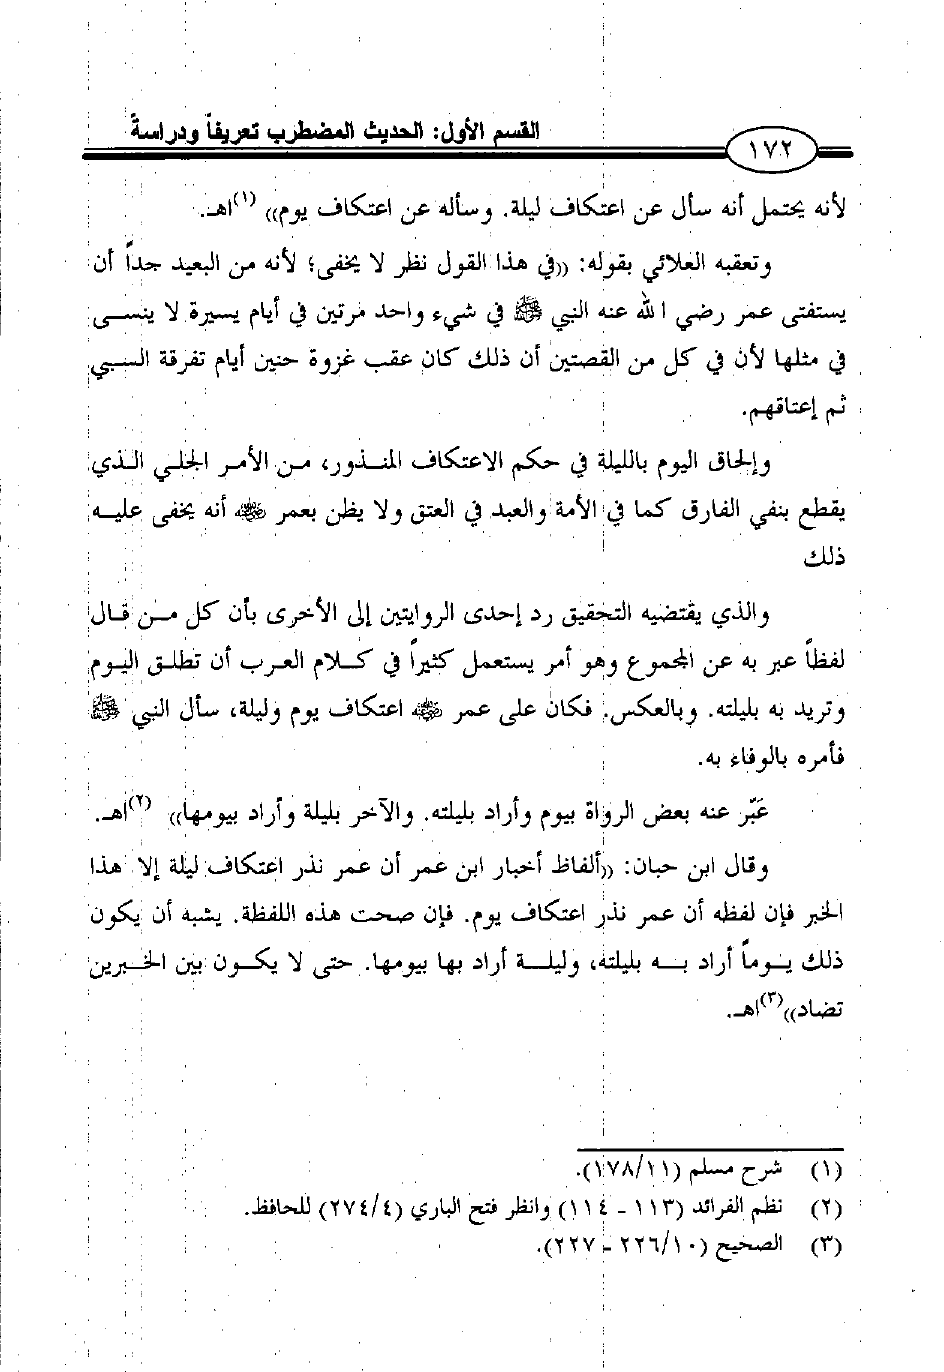 القسم الأول: الحديث المضطرب تعريفاً ودراسةً
١٧٢
لأنه يحتمل أنه سأل عن اعتكاف ليلة. وسأله عن اعتكاف يوم)) (١)اهـ.
وتعقبه العلائي بقوله: ((في هذا القول نظر لا يخفى؛ لأنه من البعيد جداً أن
يستفتى عمر رضي الله عنه النبي ﷺ في شيء واحد مرتين في أيام يسيرة لا ينسى
في مثلها لأن في كل من القصتين أن ذلك كان عقب غزوة حنين أيام تفرقة السبي
ثم إعتاقهم.
وإلحاق اليوم بالليلة في حكم الاعتكاف المنذور، من الأمر الجلي الذي
يقطع بنفي الفارق كما في الأمة والعبد في العتق ولا يظن بعمر ﷺ أنه يخفى عليه
ذلك
والذي يقتضيه التحقيق رد إحدى الروايتين إلى الأخرى بأن كل من قال
لفظاً عبر به عن المجموع وهو أمر يستعمل كثيراً في كلام العرب أن تطلق اليوم
وتريد به بليلته. وبالعكس. فكان على عمر ﷺ اعتكاف يوم وليلة، سأل النبي ﷺ
فأمره بالوفاء به.
عَبّر عنه بعض الرواة بيوم وأراد بليلته. والآخر بليلة وأراد بيومها)) (٢)اهـ.
وقال ابن حبان: ((ألفاظ أخبار ابن عمر أن عمر نذر اعتكاف ليلة إلا هذا
الخبر فإن لفظه أن عمر نذر اعتكاف يوم. فإن صحت هذه اللفظة. يشبه أن يكون
ذلك يوماً أراد به بليلته، وليلة أراد بها بيومها. حتى لا يكون بين الخبرين
تضاد))(٣)اهـ.
(١) شرح مسلم (١٧٨/١١).
(٢) نظم الفرائد (١١٣ - ١١٤) وانظر فتح الباري (٢٧٤/٤) للحافظ.
(٣) الصحيح (٢٢٦/١٠ - ٢٢٧).